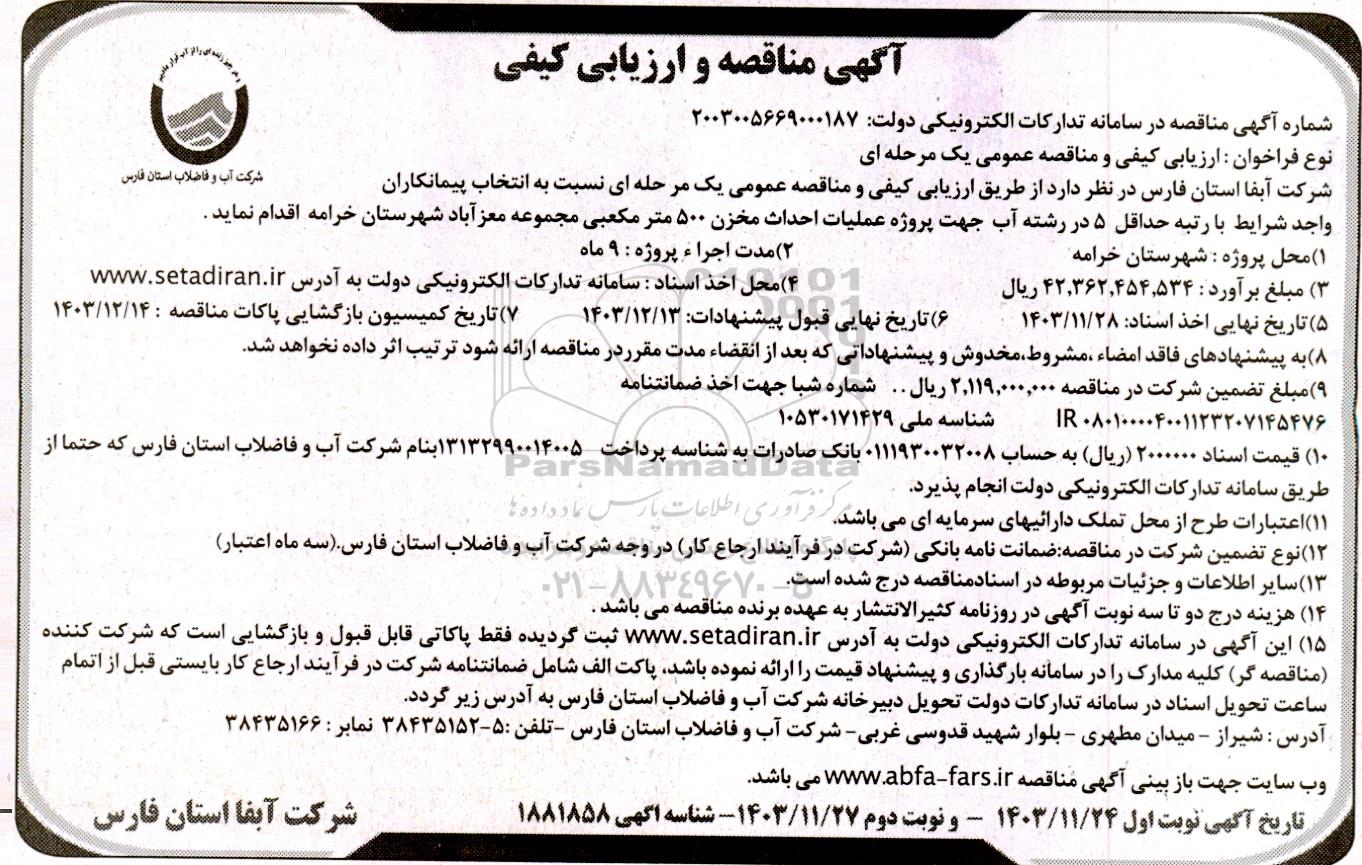 آگهی مناقصه و ارزیابی کیفی
شرکت آب و فاضلاب استان فارس
شماره آگهی مناقصه در سامانه تدارکات الکترونیکی دولت: ۲۰۰۳۰۰۵۶۶۹۰۰۰۱۸۷
نوع فراخوان : ارزیابی کیفی و مناقصه عمومی یک مرحله ای
شرکت آبفا استان فارس در نظر دارد از طریق ارزیابی کیفی و مناقصه عمومی یک مر حله ای نسبت به انتخاب پیمانکاران
واجد شرایط با رتبه حداقل ۵ در رشته آب جهت پروژه عملیات احداث مخزن ۵۰۰ متر مکعبی مجموعه معزآباد شهرستان خرامه اقدام نماید .
۱)محل پروژه : شهرستان خرامه ۲)مدت اجراء پروژه : ۹ ماه
۳) مبلغ برآورد : ۴۲,۳۶۲,۴۵۴,۵۳۴ ریال ۴)محل اخذ اسناد : سامانه تدارکات الکترونیکی دولت به آدرس www.setadiran.ir
۵)تاریخ نهایی اخذ اسناد: ۱۴۰۳/۱۱/۲۸ ۶)تاریخ نهایی قبول پیشنهادات: ۱۴۰۳/۱۲/۱۳ ۷)تاریخ کمیسیون بازگشایی پاکات مناقصه : ۱۴۰۳/۱۲/۱۴
۸)به پیشنهادهای فاقد امضاء ،مشروط،مخدوش و پیشنهاداتی که بعد از انقضاء مدت مقرردر مناقصه ارائه شود ترتیب اثر داده نخواهد شد.
۹)مبلغ تضمین شرکت در مناقصه ۲,۱۱۹,۰۰۰,۰۰۰ ریال .. شماره شبا جهت اخذ ضمانتنامه
IR ۰۸۰۱۰۰۰۰۴۰۰۱۱۲۳۲۰۷۱۴۵۴۷۶ شناسه ملی ۱۰۵۳۰۱۷۱۴۲۹
۱۰) قیمت اسناد ۲۰۰۰۰۰۰ (ریال) به حساب ۰۱۱۱۹۳۰۰۳۲۰۰۸ بانک صادرات به شناسه پرداخت ۱۳۱۳۲۹۹۰۰۱۴۰۰۵بنام شرکت آب و فاضلاب استان فارس که حتما از
ParsNamadData
طریق سامانه تدارکات الکترونیکی دولت انجام پذیرد.
مرکز فرآوری اطلاعات پارس نماد داده ها
۱۱)اعتبارات طرح از محل تملک دارائیهای سرمایه ای می باشد.
۱۲)نوع تضمین شرکت در مناقصه:ضمانت نامه بانکی (شرکت در فرآیند ارجاع کار) در وجه شرکت آب و فاضلاب استان فارس.(سه ماه اعتبار)
۱۳)سایر اطلاعات و جزئیات مربوطه در اسنادمناقصه درج شده است.
۰۲۱-۸۸۳۴۹۶۷۰-۵
۱۴) هزینه درج دو تا سه نوبت آگهی در روزنامه کثیرالانتشار به عهده برنده مناقصه می باشد .
۱۵) این آگهی در سامانه تدارکات الکترونیکی دولت به آدرس www.setadiran.ir ثبت گردیده فقط پاکاتی قابل قبول و بازگشایی است که شرکت کننده
(مناقصه گر) کلیه مدارک را در سامانه بارگذاری و پیشنهاد قیمت را ارائه نموده باشد. پاکت الف شامل ضمانتنامه شرکت در فرآیند ارجاع کار بایستی قبل از اتمام
ساعت تحویل اسناد در سامانه تدارکات دولت تحویل دبیرخانه شرکت آب و فاضلاب استان فارس به آدرس زیر گردد.
آدرس : شیراز - میدان مطهری - بلوار شهید قدوسی غربی- شرکت آب و فاضلاب استان فارس -تلفن :۵-۳۸۴۳۵۱۵۲ نمابر : ۳۸۴۳۵۱۶۶
وب سایت جهت باز بینی آگهی مناقصه www.abfa-fars.ir می باشد.
تاریخ آگهی نوبت اول ۱۴۰۳/۱۱/۲۴ - و نوبت دوم ۱۴۰۳/۱۱/۲۷- شناسه اگهی ۱۸۸۱۸۵۸
شرکت آبفا استان فارس